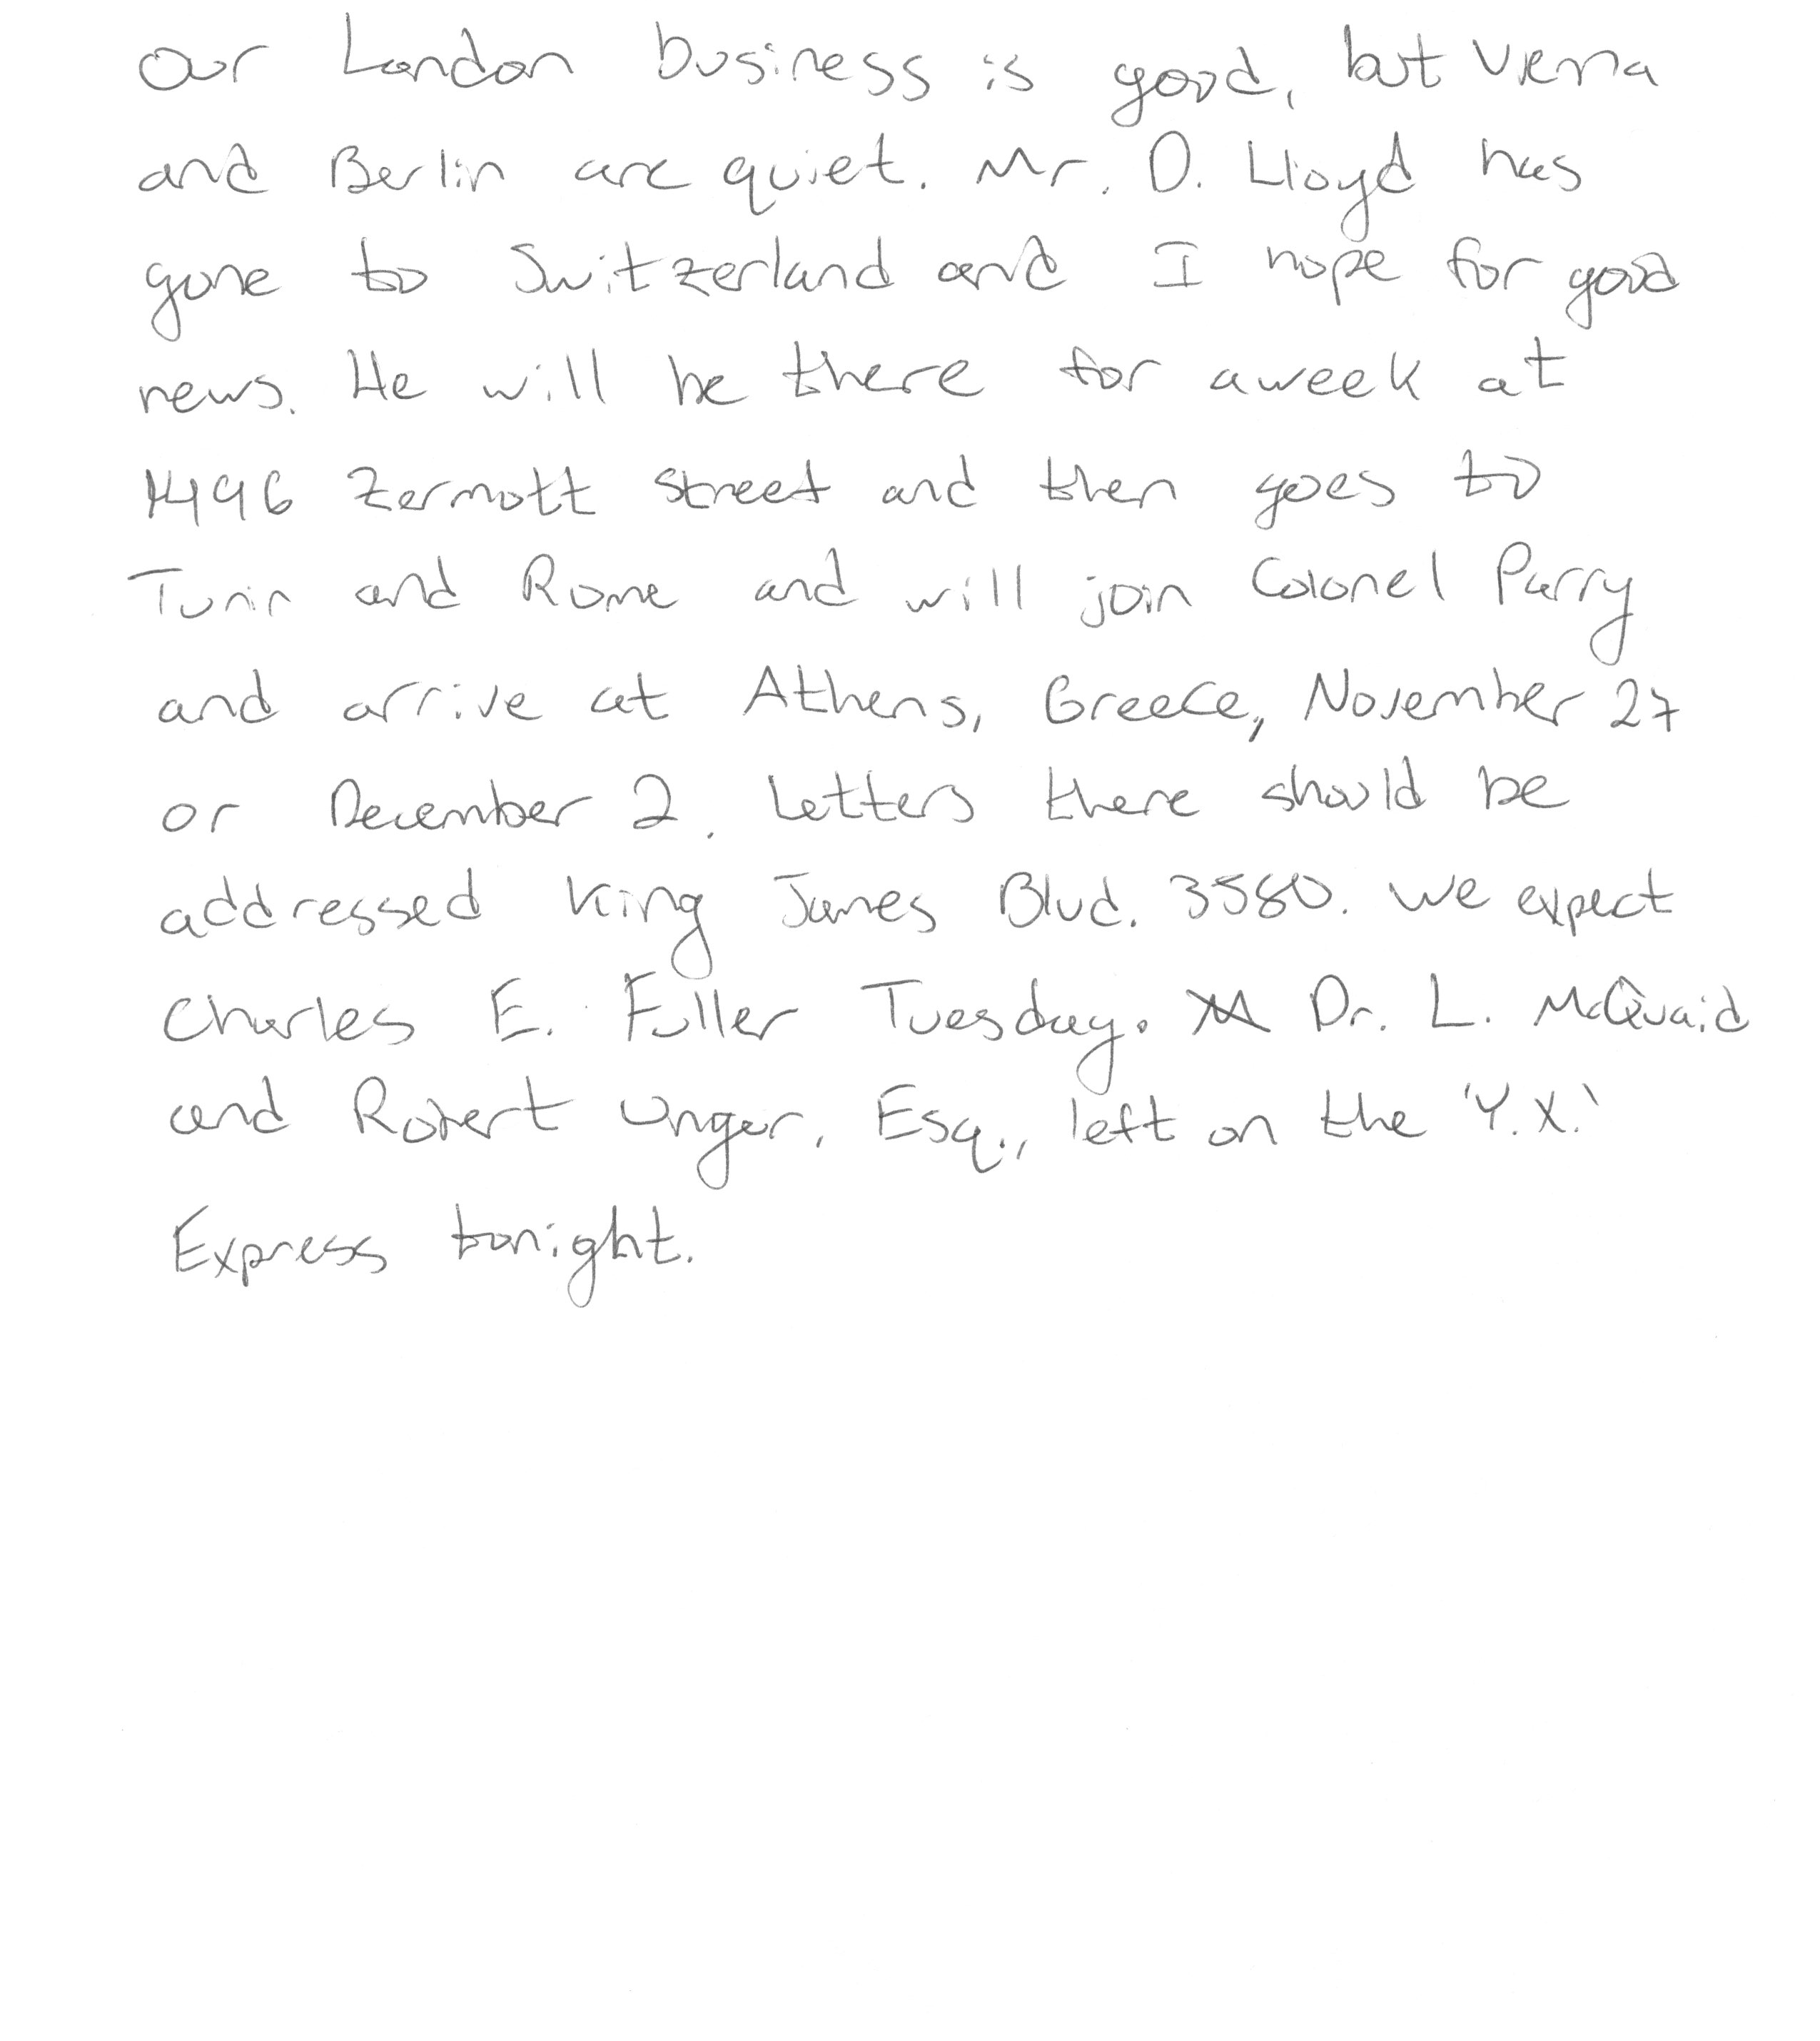 Our London business is good, but Vienna
and Berlin are quiet. Mr. D. Lloyd has
gone to Switzerland and I hope for good
news. He will be there for a week at
1496 Zermott street and then goes to
Turin and Rome and will join Colonel Parry
and arrive at Athens, Greece, November 27
or December 2. Letters there should be
addressed King James Blvd. 3580. We expect
Charles E. Fuller Tuesday. Dr. L. McQuaid
and Robert Unger, Esq., left on the 'Y.X.'
Express tonight.